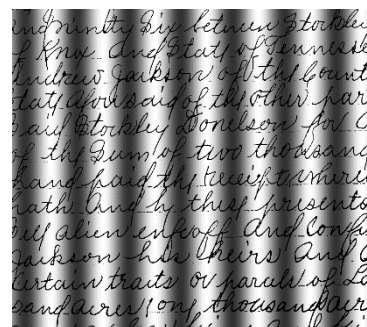 indninty Six between Stockley
f Knox. And Stat of Tennesse
Andrew Jackson off the Count
tat aforesaid of the other par
Said Stockley Donelson for a
of the Sum of two thousand
hand paid the
hath And by these presents
ell alien enfeoff And Confi
Jackson his heirs And
Certain traits or parcels of La
sand acres, ony thousand acr